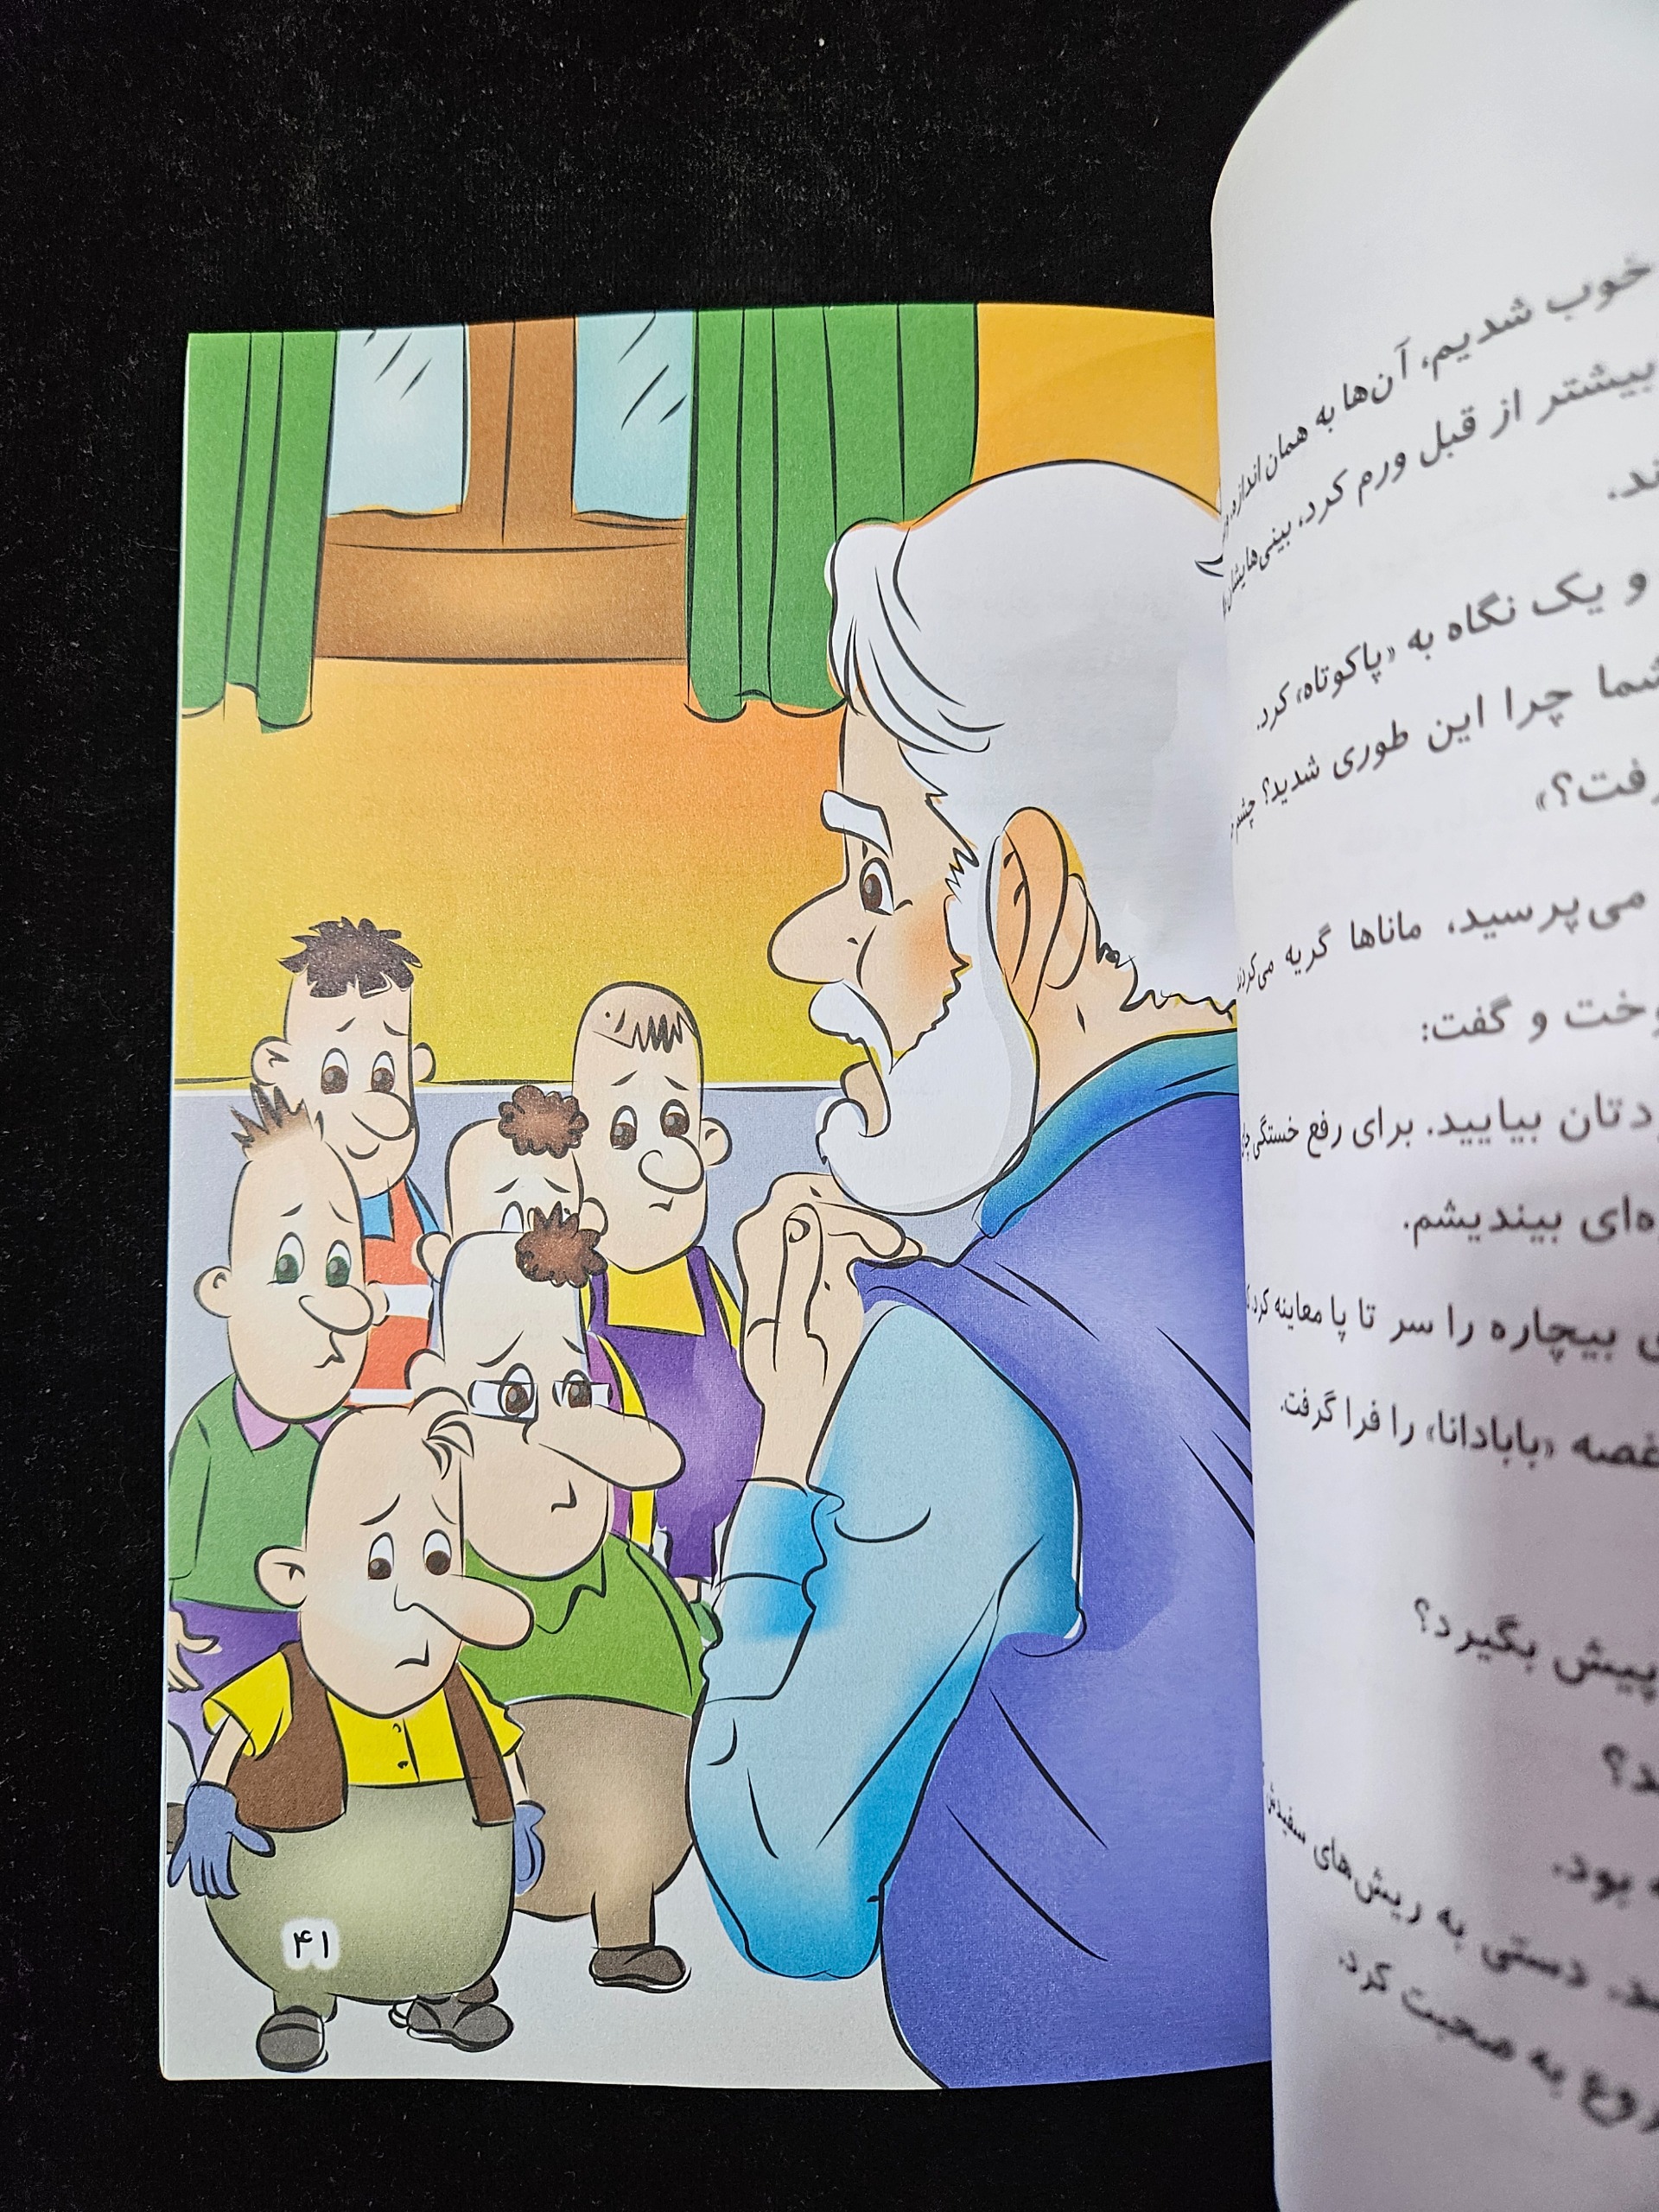 خوب شدیم، آن‌ها به همان اندازه
بیشتر از قبل ورم کرد، بینی‌هایشان
ند.
و یک نگاه به «پاکوتاه» کرد.
شما چرا این طوری شدید؟ چشم
رفت؟»
می‌پرسید، ماناها گریه می‌کردند
وخت و گفت:
دتان بیایید. برای رفع خستگی
ه‌ای بیندیشم.
ی بیچاره را سر تا پا معاینه کرد.
غصه «بابادانا» را فرا گرفت.
پیش بگیرد؟
ند؟
ه بود.
ید. دستی به ریش‌های سفیدش
روع به صحبت کرد.
۴۱